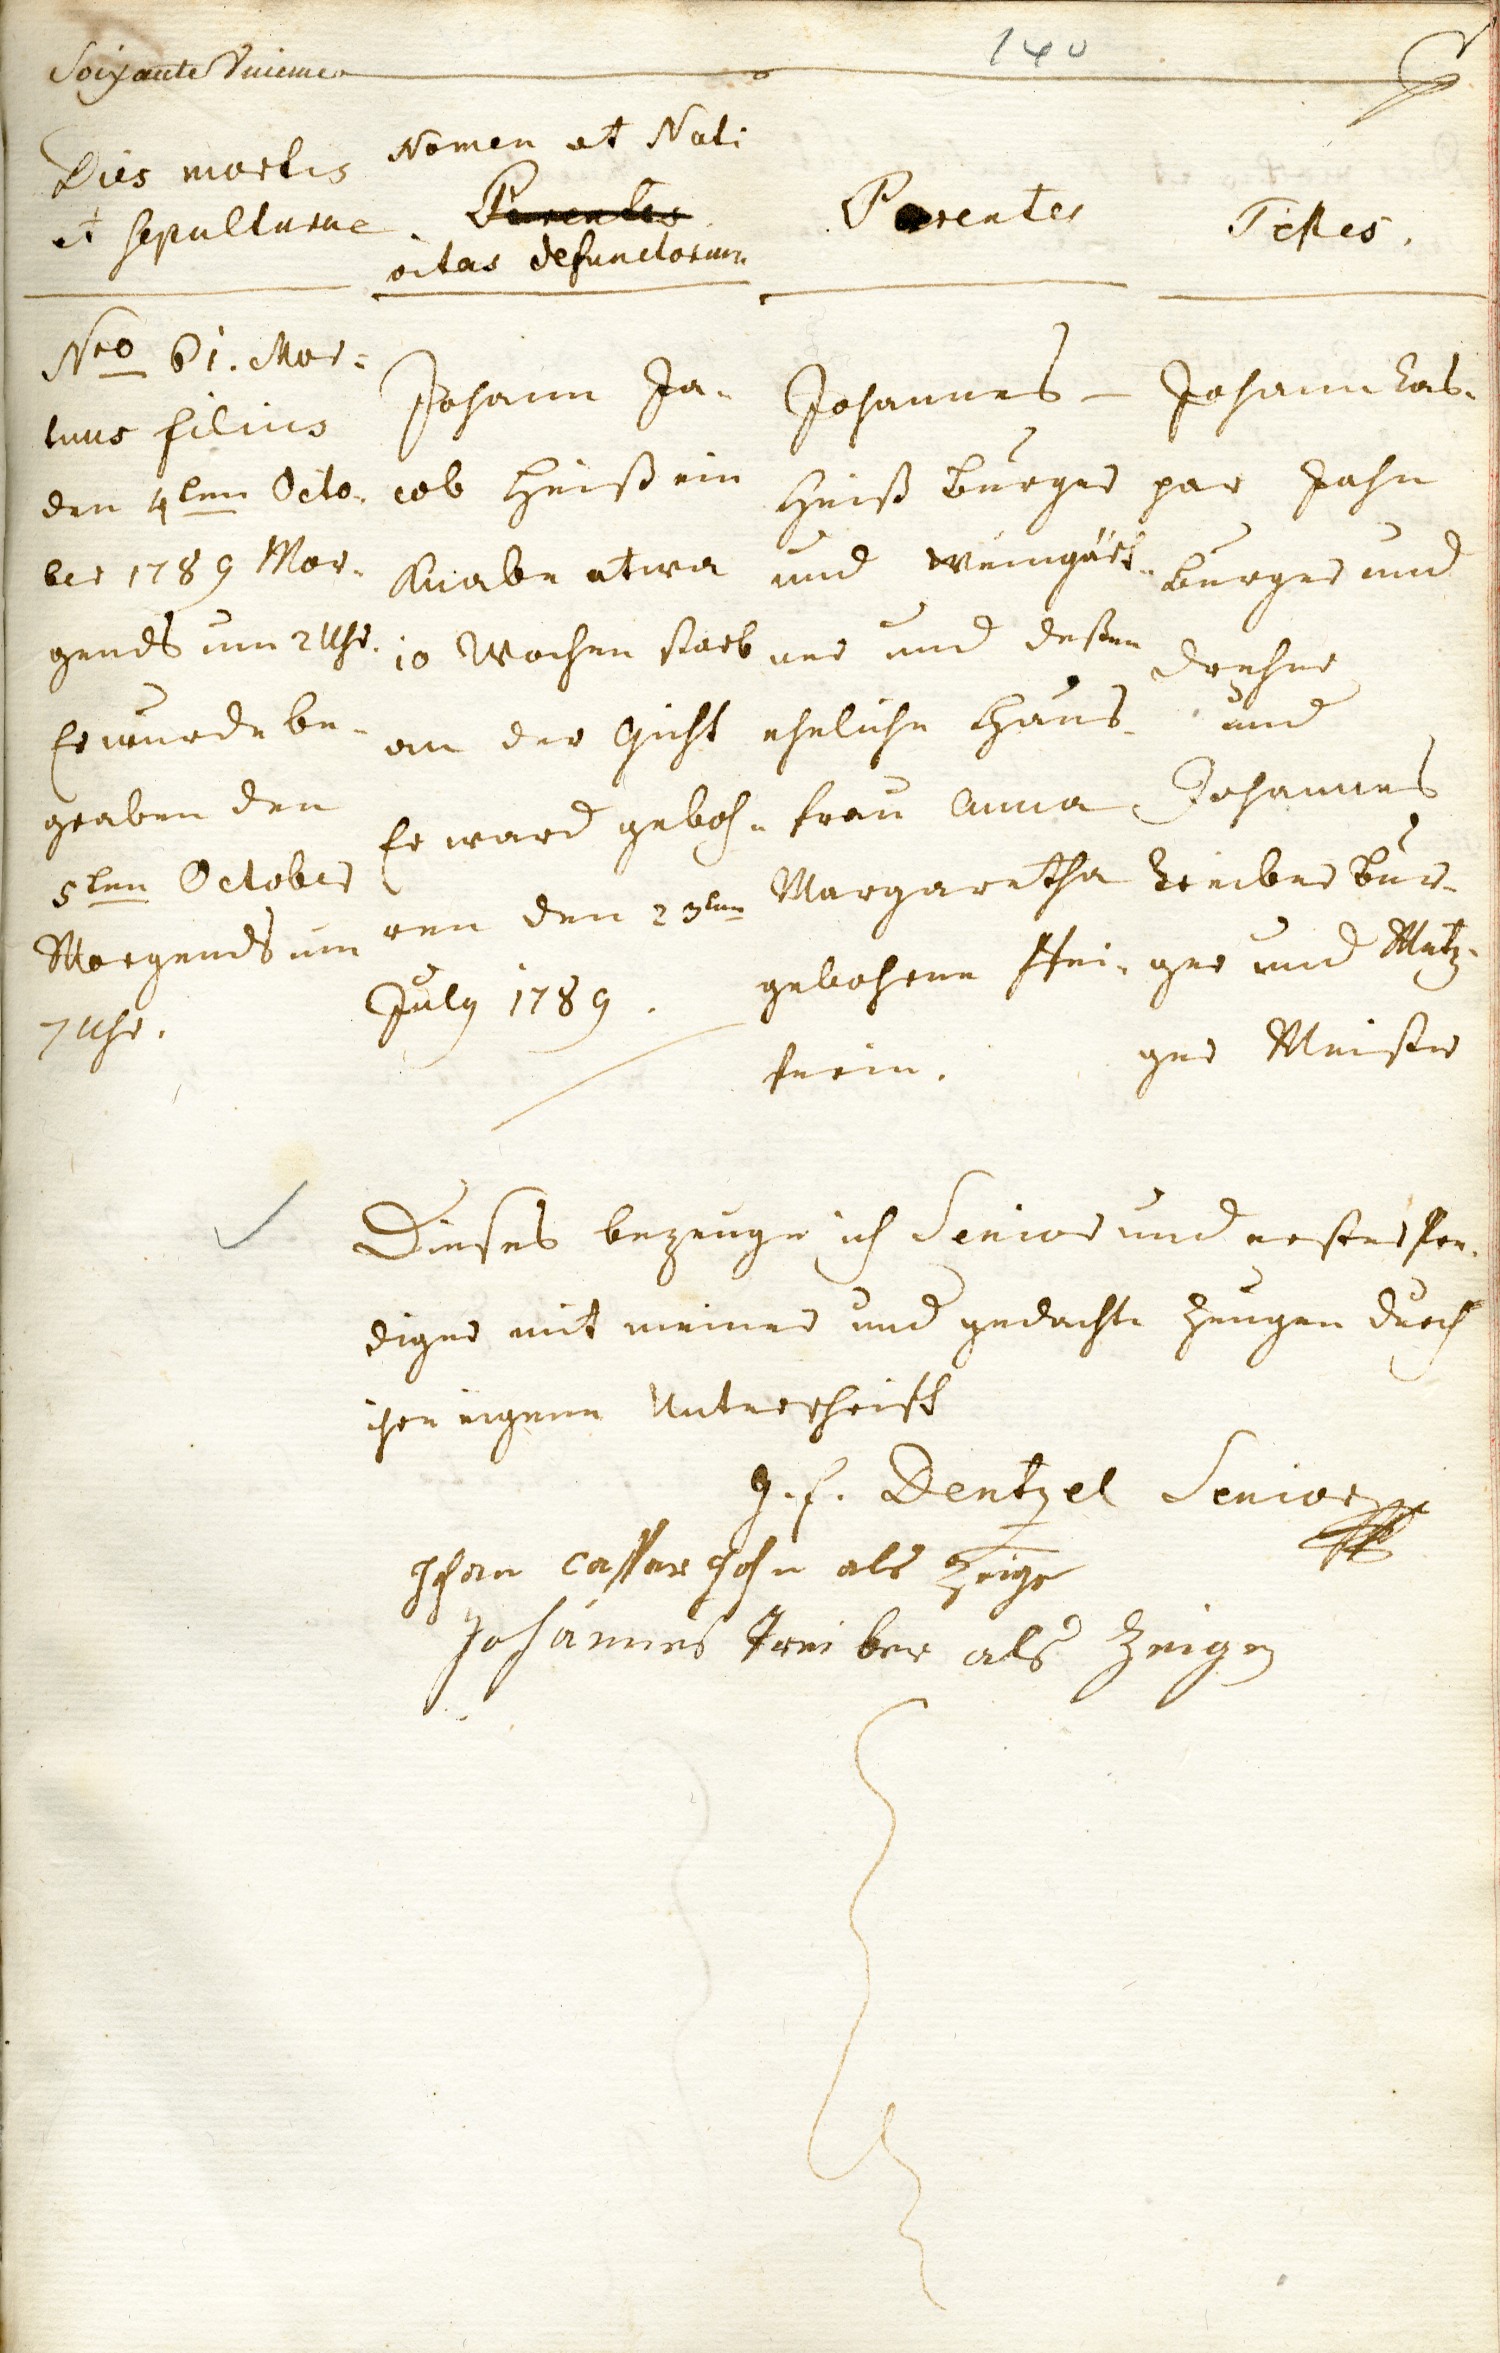 Soixante Unieme
140
Dies mortis
et sepulturae
Nomen et Nati
Parentes
vitas defunctorum
Parentes
Testes.
Nro 61. Mor=
tuus filius
den 4ten Octo-
ber 1789 Mor-
gends um 2 Uhr.
Er wurde be-
graben den
5ten October
Morgends um
7 Uhr.
Johann Ja-
cob Heiß ein
Knabe etwa
10 Wochen starb
an der Gicht
Er ward geboh-
ren den 23ten
July 1789.
Johannes
Heiß Burger
und Weingärt-
ner und deßen
eheliche Haus-
frau Anna
Margaretha
gebohrene Pfei-
ferin.
Johann Cas-
par Jahn
Burger und
Dreher
und
Johannes
Treiber Bur-
ger und Metz-
ger Meister
Dieses bezeuge ich Senior und erster Pre-
diger mit meiner und gedachte Zeugen durch
ihre eigene Unterschrift
G. F. Dentzel Senior
Johan Casper John als Zeige
Johannes Treiber als Zeigen